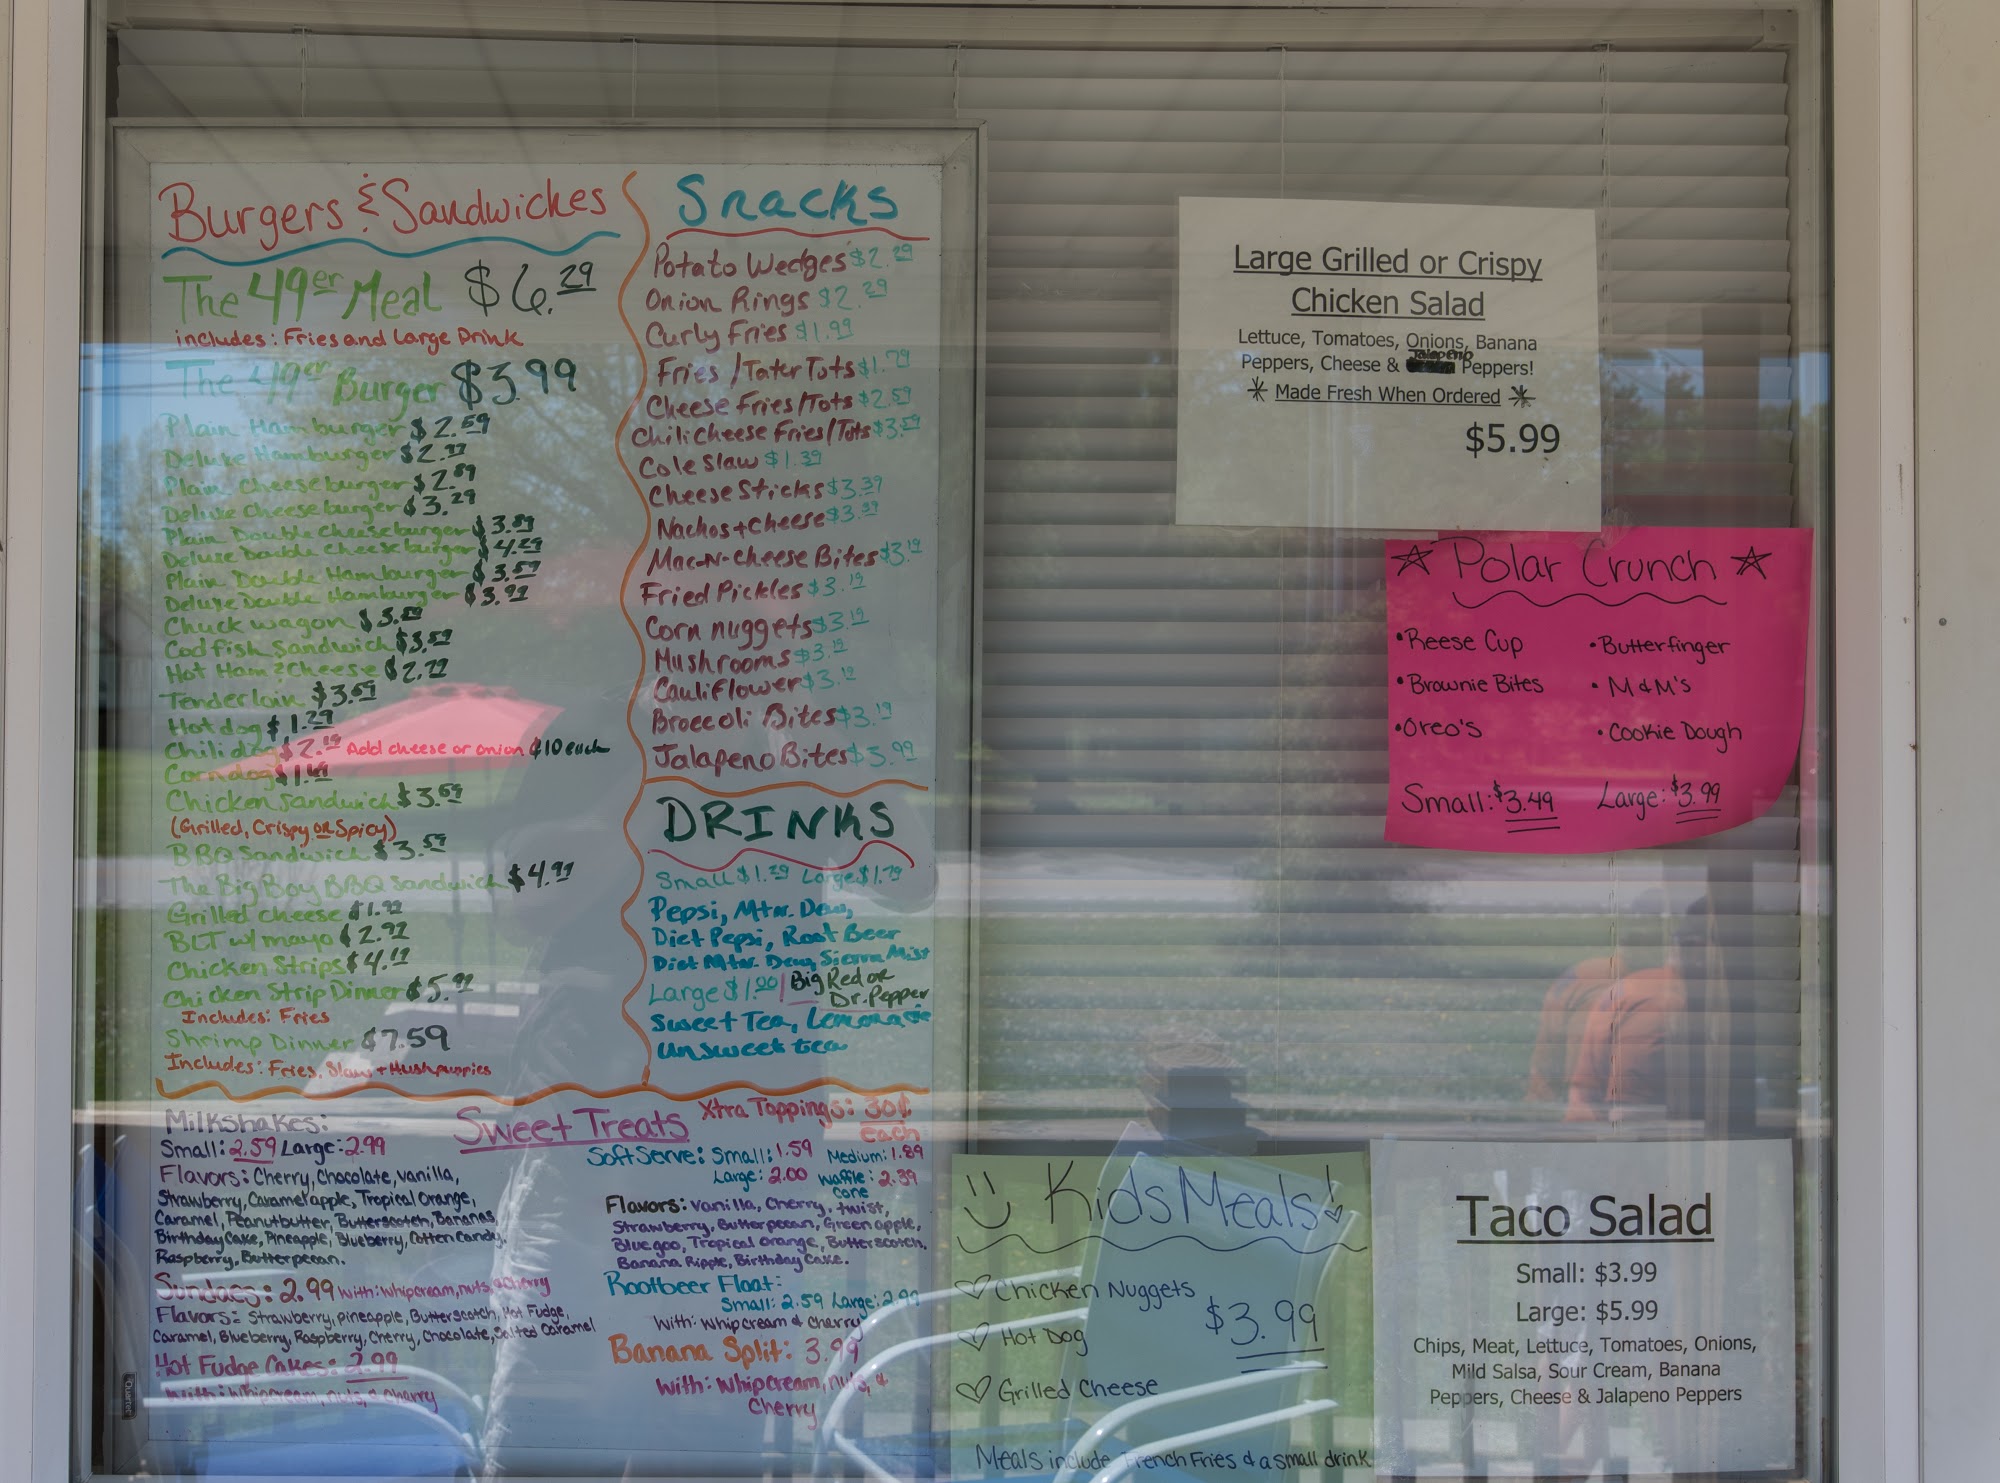 Burgers & Sandwiches
The 49er Meal $6.29
includes: Fries and Large Drink
The 49er Burger $3.99
Plain Hamburger $2.59
Deluxe Hamburger $2.99
Plain Cheeseburger $2.89
Deluxe Cheeseburger $3.29
Plain Double Cheeseburger $3.89
Deluxe Double Cheeseburger $4.29
Plain Double Hamburger $3.59
Deluxe Double Hamburger $3.99
Chuck wagon $3.59
Cod fish Sandwich $3.59
Hot Ham & Cheese $2.79
Tenderloin $3.69
Hotdog $1.29
Chili dog $2.19 Add cheese or onion ¢10 each
Corn dog $1.49
Chicken Sandwich $3.69
(Grilled, Crispy or Spicy)
BBQ Sandwich $3.59
The Big Boy BBQ Sandwich $4.99
Grilled cheese $1.99
BLT w/ mayo $2.99
Chicken Strips $4.19
Chicken Strip Dinner $5.99
Includes: Fries
Shrimp Dinner $7.59
Includes: Fries, Slaw + Hushpuppies
Snacks
Potato Wedges $2.29
Onion Rings $2.29
Curly Fries $1.99
Fries / Tater Tots $1.79
Cheese Fries/Tots $2.59
Chili Cheese Fries/Tots $3.59
Cole Slaw $1.39
Cheese Sticks $3.39
Nachos + Cheese $3.39
Mac-N-Cheese Bites $3.19
Fried Pickles $3.19
Corn nuggets $3.19
Mushrooms $3.19
Cauliflower $3.19
Broccoli Bites $3.19
Jalapeno Bites $3.99
DRINKS
Small $1.29 Large $1.79
Pepsi, Mtn. Dew,
Diet Pepsi, Root Beer
Diet Mtn. Dew, Sierra Mist
Large $1.00 / Big Red or
Dr. Pepper
Sweet Tea, Lemonade
Unsweet tea
Milkshakes:
Small: 2.59 Large: 2.99
Flavors: Cherry, Chocolate, vanilla,
Strawberry, Caramel apple, Tropical Orange,
Caramel, Peanutbutter, Butterscotch, Bananas,
Birthday Cake, Pineapple, Blueberry, Cotten Candy,
Raspberry, Butterpecan.
Sundaes: 2.99 with: whipcream, nuts, & cherry
Flavors: Strawberry, pineapple, Butterscotch, Hot Fudge,
Caramel, Blueberry, Raspberry, Cherry, Chocolate, Salted Caramel
Hot Fudge Cakes: 2.99
with: whipcream, nuts, & cherry
Sweet Treats
Xtra Toppings: 30¢
each
Soft Serve: Small: 1.59 Medium: 1.89
Large: 2.00 Waffle: 2.39
Cone
Flavors: Vanilla, Cherry, twist,
Strawberry, Butterpecan, Green apple,
Blue goo, Tropical Orange, Butterscotch,
Banana Ripple, Birthday Cake.
Rootbeer Float:
Small: 2.59 Large: 2.99
With: whip cream & cherry
Banana Split: 3.99
With: whipcream, nuts, &
Cherry
Quartet
Large Grilled or Crispy
Chicken Salad
Lettuce, Tomatoes, Onions, Banana
Peppers, Cheese & Jalapeno Peppers!
Made Fresh When Ordered
$5.99
Polar Crunch
•Reese Cup
•Butterfinger
•Brownie Bites
•M&M's
•Oreo's
•Cookie Dough
Small: $3.49 Large: $3.99
Kids Meals!
Chicken Nuggets
Hot Dog
Grilled Cheese
$3.99
Meals include French Fries & a small drink
Taco Salad
Small: $3.99
Large: $5.99
Chips, Meat, Lettuce, Tomatoes, Onions,
Mild Salsa, Sour Cream, Banana
Peppers, Cheese & Jalapeno Peppers